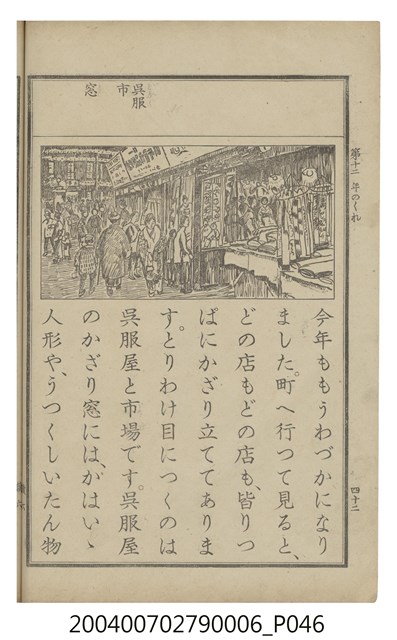 第十二 年のくれ
四十二
呉服
市
窓
今年ももうわづかになり
ました。町へ行つて見ると、
どの店もどの店も、皆りつ
ぱにかざり立ててありま
す。とりわけ目につくのは
呉服屋と市場です。呉服屋
のかざり窓には、かはいゝ
人形や、うつくしいたん物
200400702790006_P046